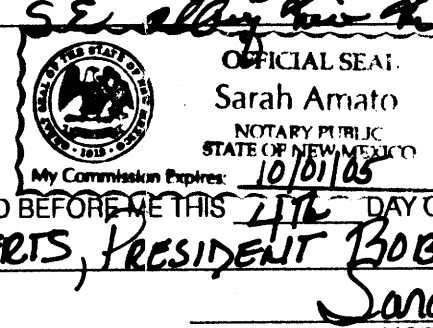 OFFICIAL SEAL
Sarah Amato
NOTARY PUBLIC
STATE OF NEW MEXICO
My Commission Expires: 10/01/05
D BEFORE ME THIS 4th DAY O
ERTS, PRESIDENT BOB
Sara